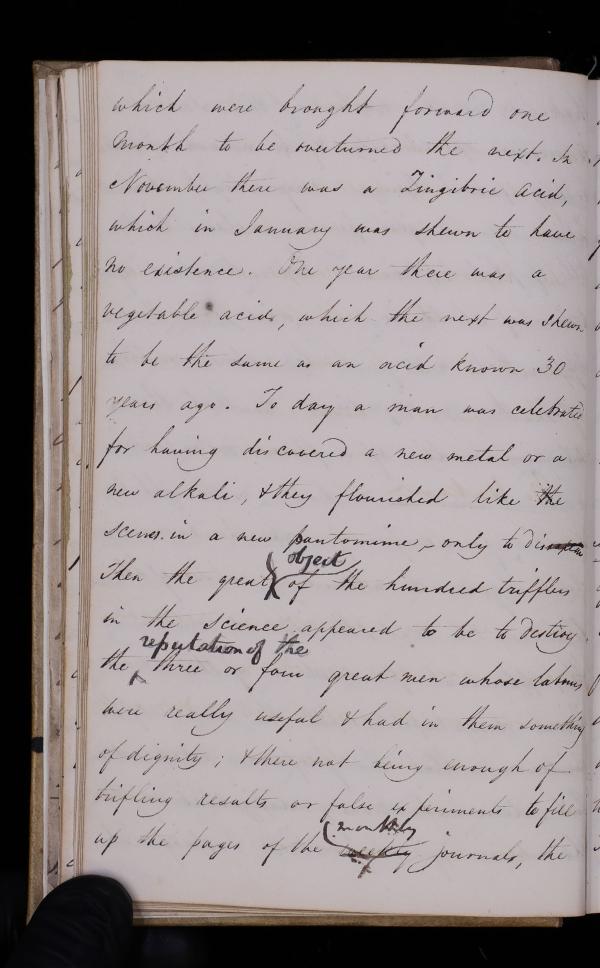 which were brought forward one
month to be overturned the next. In
November there was a Zingibric acid,
which in January was shewn to have
no existence. One year there was a
vegetable acid, which the next was shewn
to be the same as an acid known 30
years ago. To day a man was celebrated
for having discovered a new metal or a
new alkali, & they flourished like the
scenes in a new pantomime, – only to disappear
Then the great object of the hundred trifflers
in the science appeared to be to destroy
reputation of the
the three or four great men whose labours
were really useful & had in them something
of dignity; & there not being enough of
trifling results or false experiments to fill
up the pages of the monthly journals, the